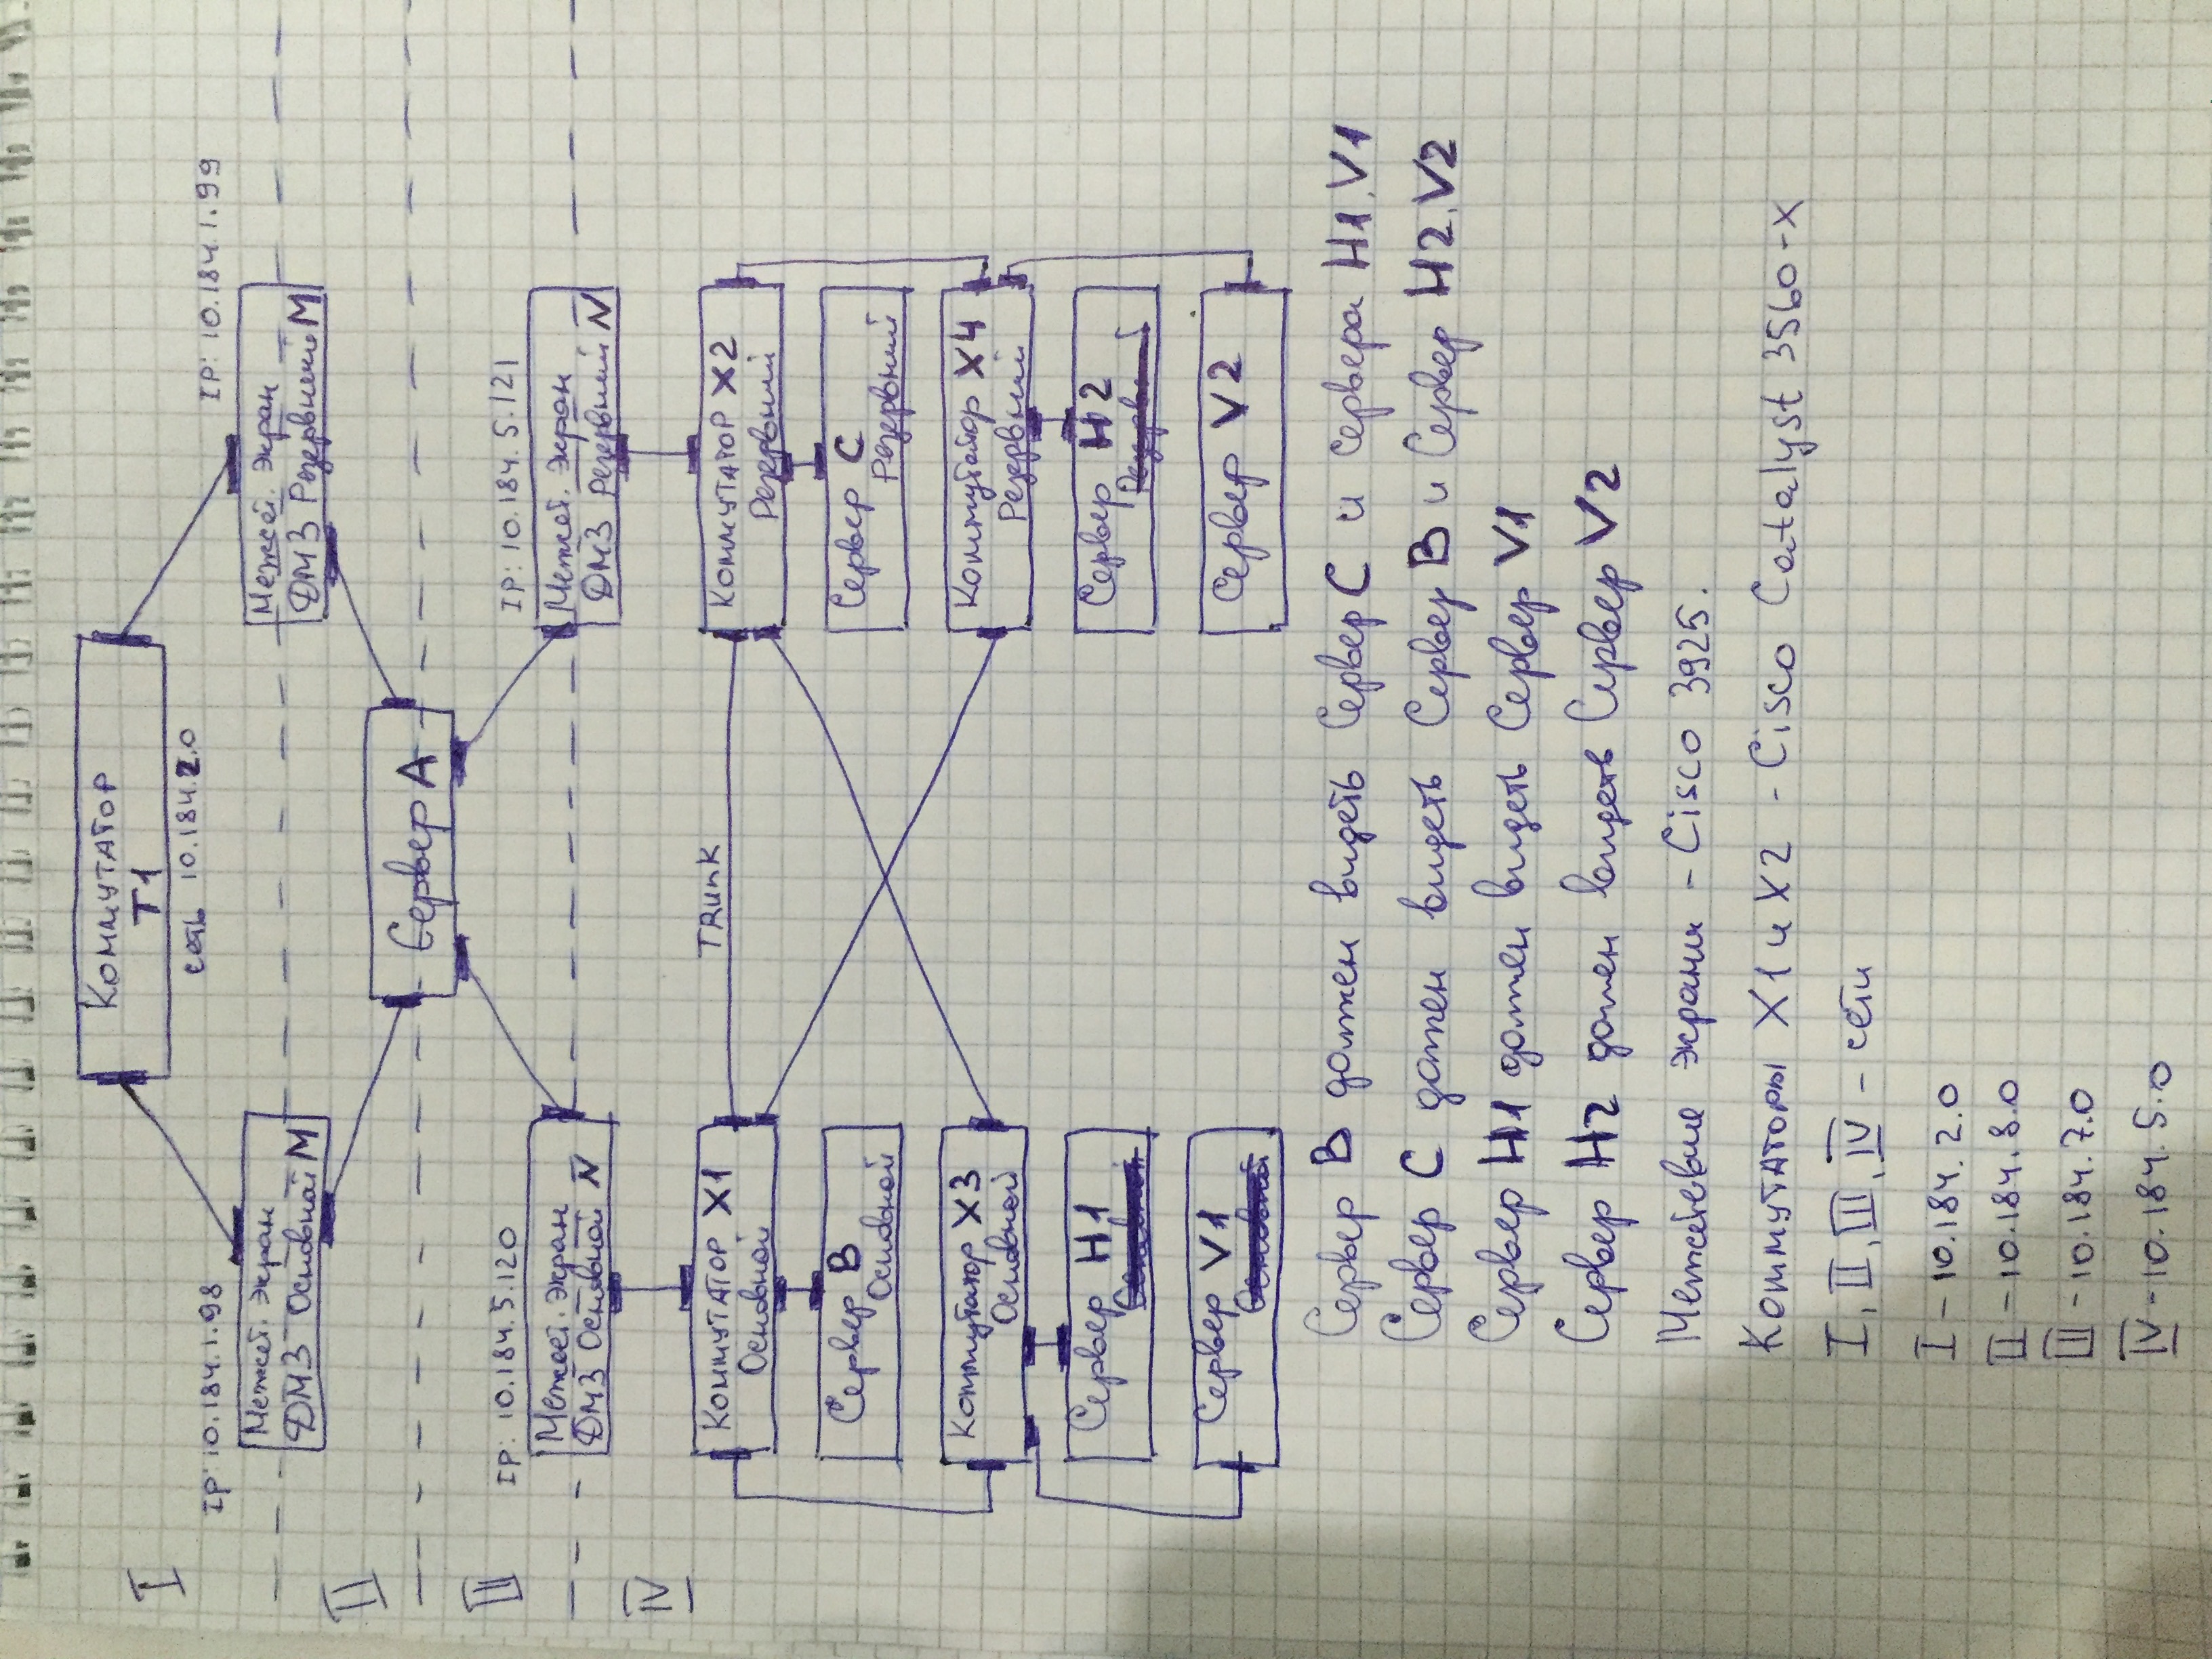 I
Коммутатор
T1
сеть 10.184.2.0
IP: 10.184.1.98
Межсет. Экран
ДМЗ Основной M
IP: 10.184.1.99
Межсет. Экран
ДМЗ Резервный M
II
Сервер A
III
IP: 10.184.5.120
Межсет. Экран
ДМЗ Основной N
IP: 10.184.5.121
Межсет. Экран
ДМЗ Резервный N
IV
Коммутатор X1
Основной
TRunK
Коммутатор X2
Резервный
Сервер B
Основной
Сервер C
Резервный
Коммутатор X3
Основной
Коммутатор X4
Резервный
Сервер H1
Сервер H2
Сервер V1
Сервер V2
Сервер B должен видеть Сервер C и Сервера H1,V1
Сервер C должен видеть Сервер B и Сервер H2,V2
Сервер H1 должен видеть Сервер V1
Сервер H2 должен видеть Сервер V2
Межсетевые экраны - Cisco 3925.
Коммутаторы X1 и X2 - Cisco Catalyst 3560-X
I, II, III, IV - сети
I - 10.184.2.0
II - 10.184.8.0
III - 10.184.7.0
IV - 10.184.5.0